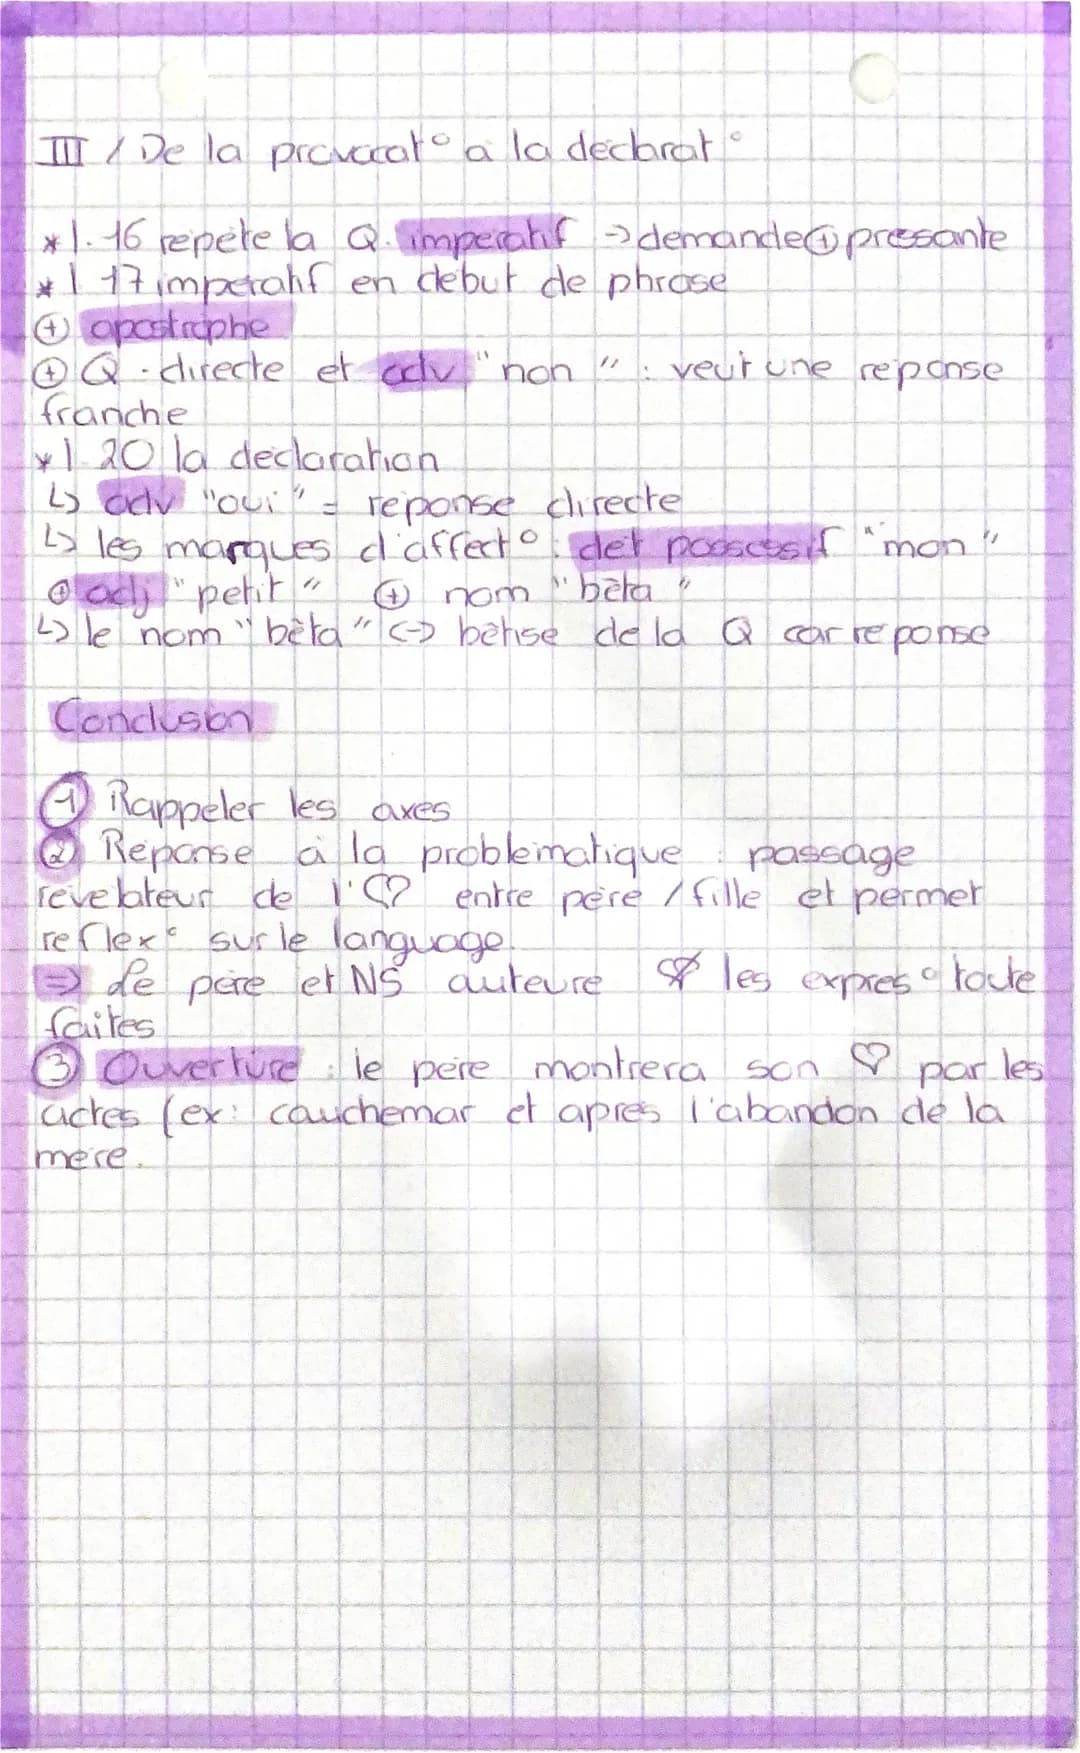 III / De la provocat° a la declarat°
* l. 16 repete la Q. imperatif → demande ⊕ pressante
* l 17 imperatif en debut de phrase
⊕ apostrophe
⊕ Q. directe et adv "non" : veut une reponse
franche
* l. 20 la declaration
↳ adv "oui" = reponse directe
↳ les marques d'affect° : det possessif "mon"
⊕ adj "petit" ⊕ nom "bêta"
↳ le nom "bêta" <-> bêtise de la Q car reponse
Conclusion
① Rappeler les axes
② Reponse à la problematique : passage
revelateur de l'♡ entre père / fille et permet
reflex° sur le language.
⇒ de père et NS auteure les expres° toute
faites
③ Ouverture : le père montrera son ♡ par les
actes (ex: cauchemar et apres l'abandon de la
mère.